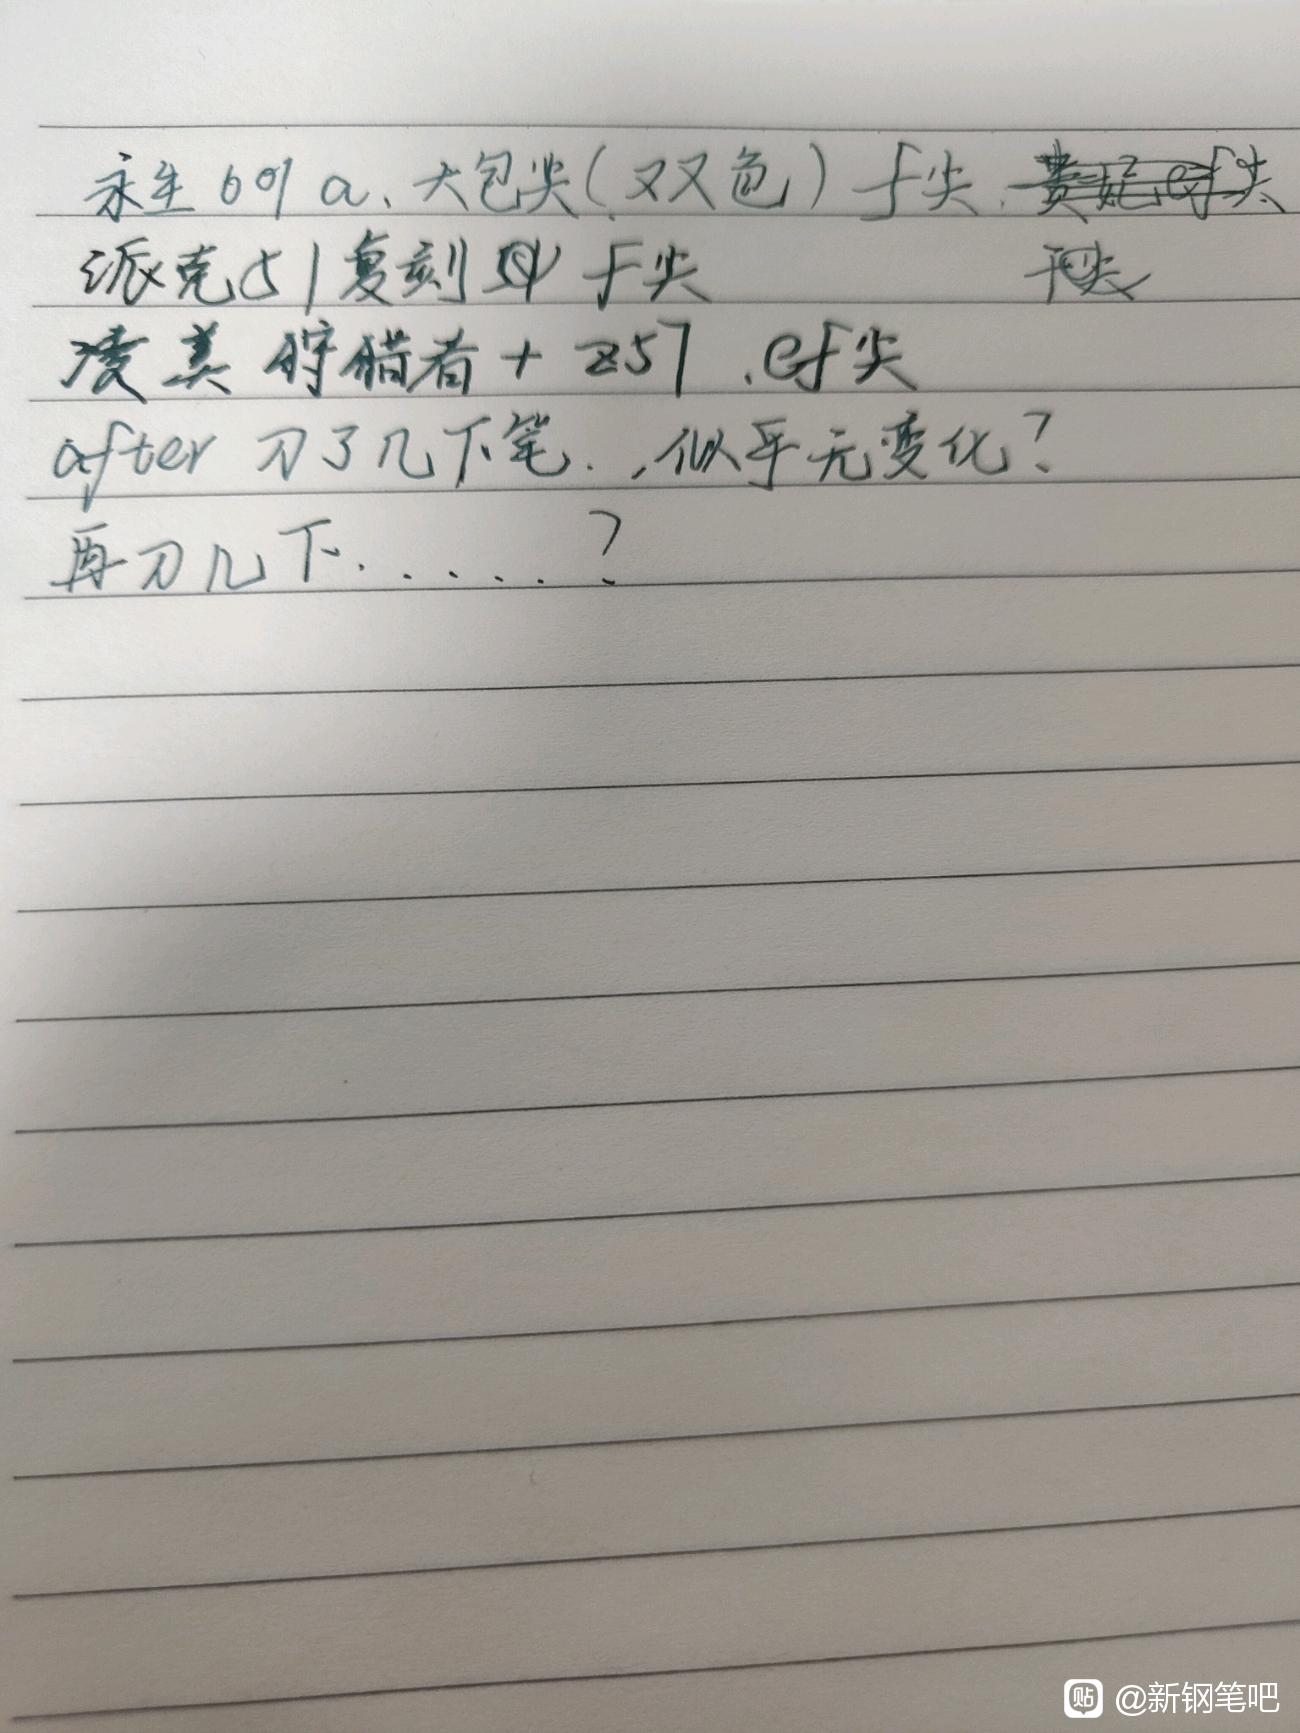 永生601a、大包尖(双双色)f尖、贵妃ef尖
派克51复刻 f尖
凌美 狩猎者+z57、ef尖
after 刀了几下笔..,似乎无变化?
再刀几下......?
贴 @新钢笔吧